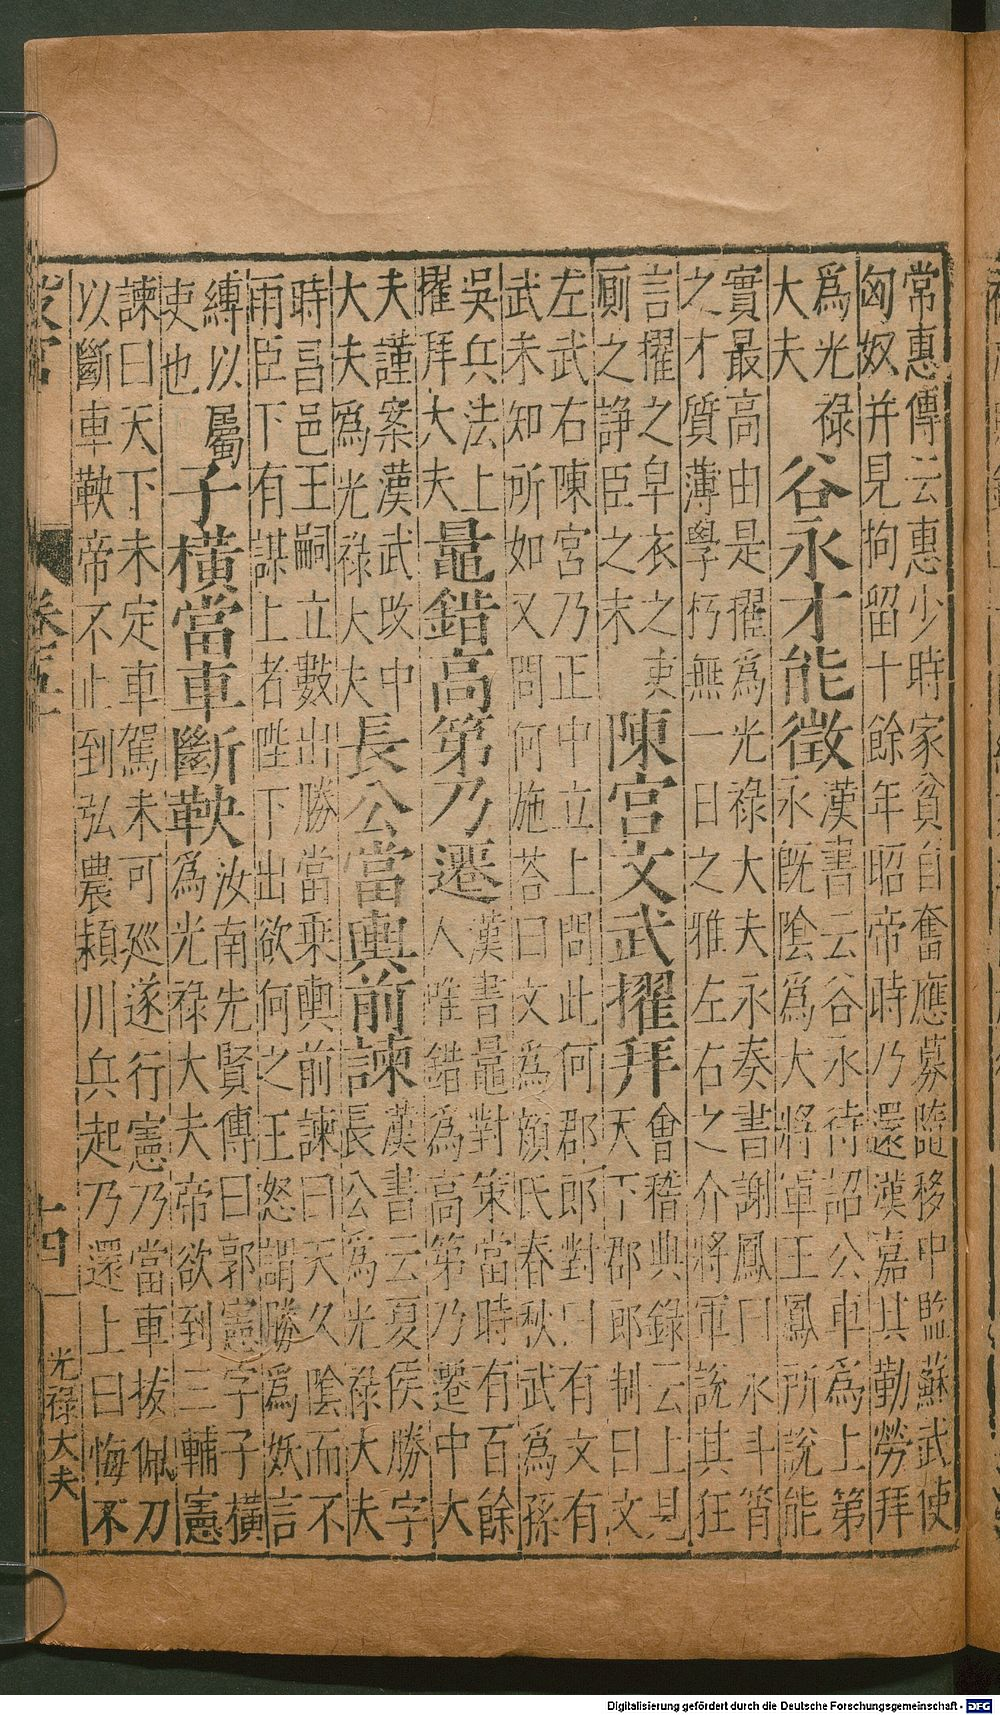 常惠傳云惠少時家貧自奮應募隨移中監蘇武使
匈奴并見拘留十餘年昭帝時乃還漢嘉其勤勞拜
爲光禄
大夫
谷永才能徵
漢書云谷永待詔公車爲上第
永旣陰爲大將軍王鳳所說能
實最高由是擢爲光禄大夫永奏書謝鳳曰永斗筲
之才質薄學朽無一日之雅左右之介將軍說其狂
言擢之皁衣之吏
厠之諍臣之末
陳宮文武擢拜
會稽典錄云上見
天下郡郎制曰文
左武右陳宮乃正中立上問此何郡郎對曰有文有
武未知所如又問何施荅曰文爲顔氏春秋武爲孫
吳兵法上
擢拜大夫
鼂錯高第乃遷
漢書鼂對策當時有百餘
人唯錯爲高第乃遷中大
夫謹案漢武改中
大夫爲光禄大夫
長公當輿前諫
漢書云夏侯勝字
長公爲光禄大夫
時昌邑王嗣立數出勝當乗輿前諫曰天久陰而不
雨臣下有謀上者陛下出欲何之王怒謂勝爲妖言
縛以屬
吏也
子橫當車斷鞅
汝南先賢傳曰郭憲字子橫
爲光禄大夫帝欲到三輔憲
諫曰天下未定車駕未可廵遂行憲乃當車拔佩刀
以斷車鞅帝不止到弘農潁川兵起乃還上曰悔不
卷五十
十四
光禄大夫
Digitalisierung gefördert durch die Deutsche Forschungsgemeinschaft - DFG